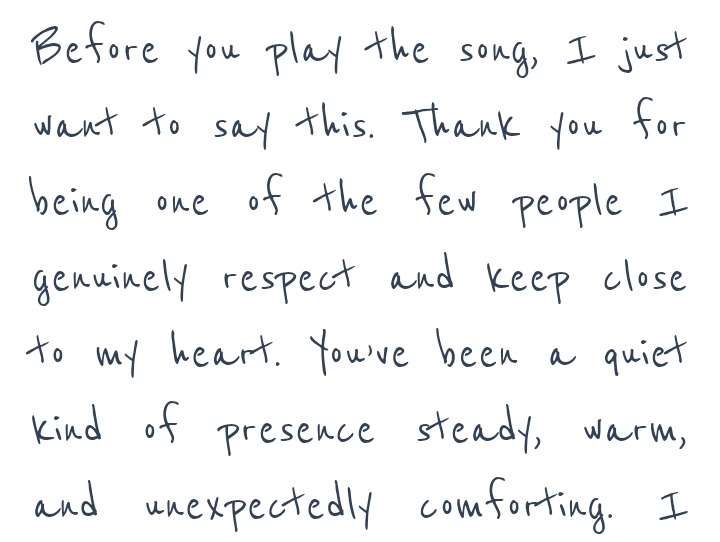 Before you play the song, I just
want to say this. Thank you for
being one of the few people I
genuinely respect and keep close
to my heart. You've been a quiet
kind of presence steady, warm,
and unexpectedly comforting. I